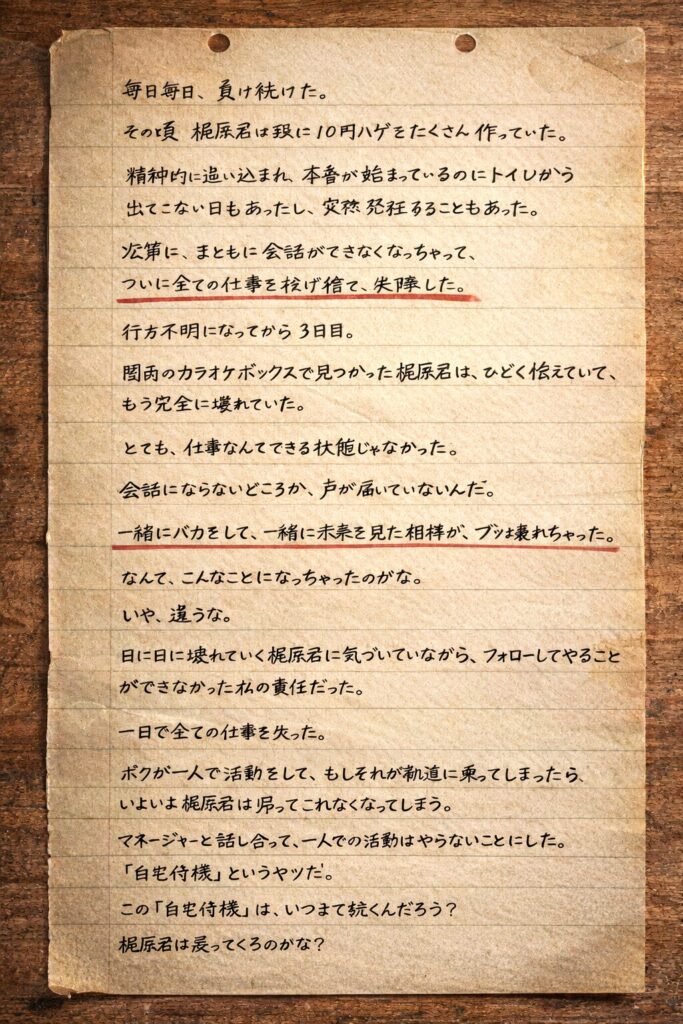 毎日毎日、負け続けた。
その頃 梶原君は 既に10円ハゲをたくさん作っていた。
精神的に追い込まれ、本番が始まっているのにトイレから
出てこない日もあったし、突然 発狂することもあった。
次第に、まともに会話ができなくなっちゃって、
ついに全ての仕事を投げ捨て、失踪した。
行方不明になってから3日目。
関西のカラオケボックスで見つかった梶原君は、ひどく怯えていて、
もう完全に壊れていた。
とても、仕事なんてできる状態じゃなかった。
会話にならないどころか、声が届いていないんだ。
一緒にバカをして、一緒に未来を見た相棒が、ブッ壊れちゃった。
なんて、こんなことになっちゃったのがな。
いや、違うな。
日に日に壊れていく梶原君に気づいていながら、フォローしてやること
ができなかった私の責任だった。
一日で全ての仕事を失った。
ボクが一人で活動をして、もしそれが軌道に乗ってしまったら、
いよいよ梶原君は帰ってこれなくなってしまう。
マネージャーと話し合って、一人での活動はやらないことにした。
「自宅待機」というヤツだ。
この「自宅待機」は、いつまで続くんだろう？
梶原君は戻ってくるのがな？